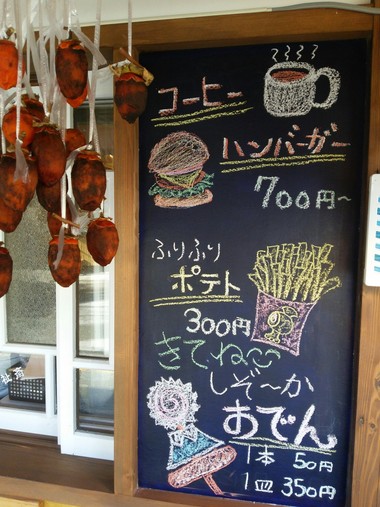 コーヒー
ハンバーガー
700円~
ふりふり
ポテト
300円
きてねー
しぞ~か
おでん
1本 50円
1皿 350円